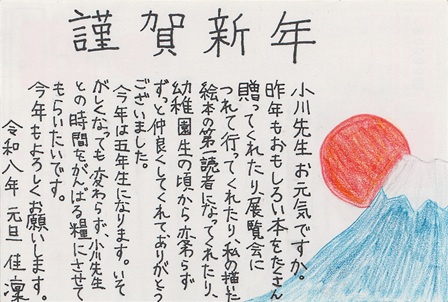 謹賀新年
小川先生お元気ですか。
昨年もおもしろい本をたくさん
贈ってくれたり、展覧会に
つれて行ってくれたり、私の描いた
絵本の第一読者になってくれたり、
幼稚園生の頃から変わらず
ずっと仲良くしてくれてありがとう
ございました。
今年は五年生になります。いそ
がしくなっても変わらず、小川先生
との時間をがんばる糧にさせて
もらいたいです。
今年もよろしくお願いします。
令和八年 元旦 佳凜